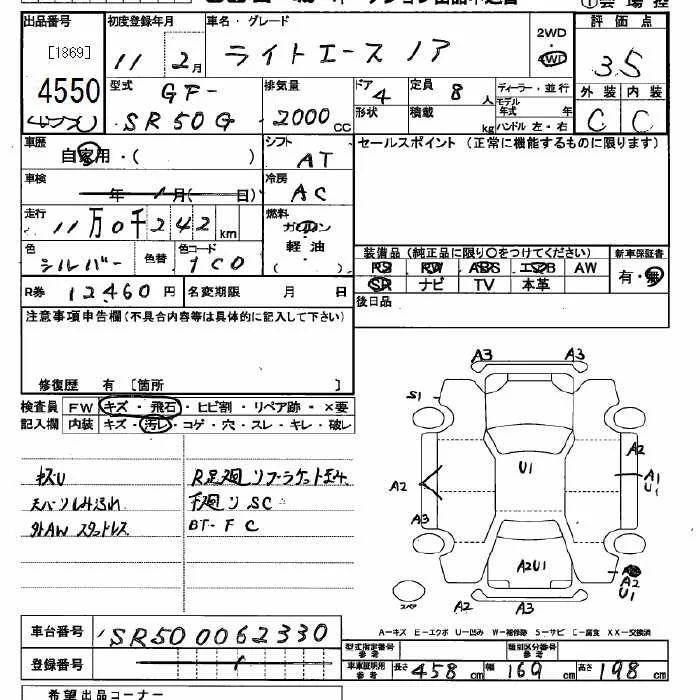 出品番号 初度登録年月 車名・グレード 2WD 評価点
[1869] 11 2月 ライトエース ノア 4WD 3.5
4550 型式 GF- 排気量 ドア 4 定員 8人 ディーラー・並行 外装 内装
SR50G 2000cc 形状 積載 kg モデル年式 年 ハンドル 左・右 C C
車歴 自家用・( ) シフト AT セールスポイント (正常に機能するものに限ります)
車検 年 月( 日) 冷房 AC
走行 11万0千242km 燃料 ガソリン
軽油
色 シルバー 色替 色コード 1C0 ( ) 装備品 (純正品に限り○をつけてください) 新車保証書
PS PW ABS エアB AW 有・無
R券 12460円 名変期限 月 日 SR ナビ TV 本革
注意事項申告欄(不具合内容等は具体的に記入して下さい) 後日品
修復歴 有 [箇所 ]
検査員 FW キズ・飛石・ヒビ割・リペア跡・×要
記入欄 内装 キズ・汚レ・コゲ・穴・スレ・キレ・破レ
キズU
天バリしみ汚れ
外AW スタットレス
下廻りSC
BT-FC
A3 A3
S1
A2
U1
A1
U1
A2
A3
A2U1
A2
U1
A2 A3
スペア
A―キズ E―エクボ U―凹み W―補修跡 S―サビ C―腐食 XX―交換済
車台番号 SR50 0062330
型式指定番号 参考 類別区分番号 参考
登録番号
車庫証明用 参考 長さ 458cm 幅 169cm 高さ 198cm
希望出品コーナー